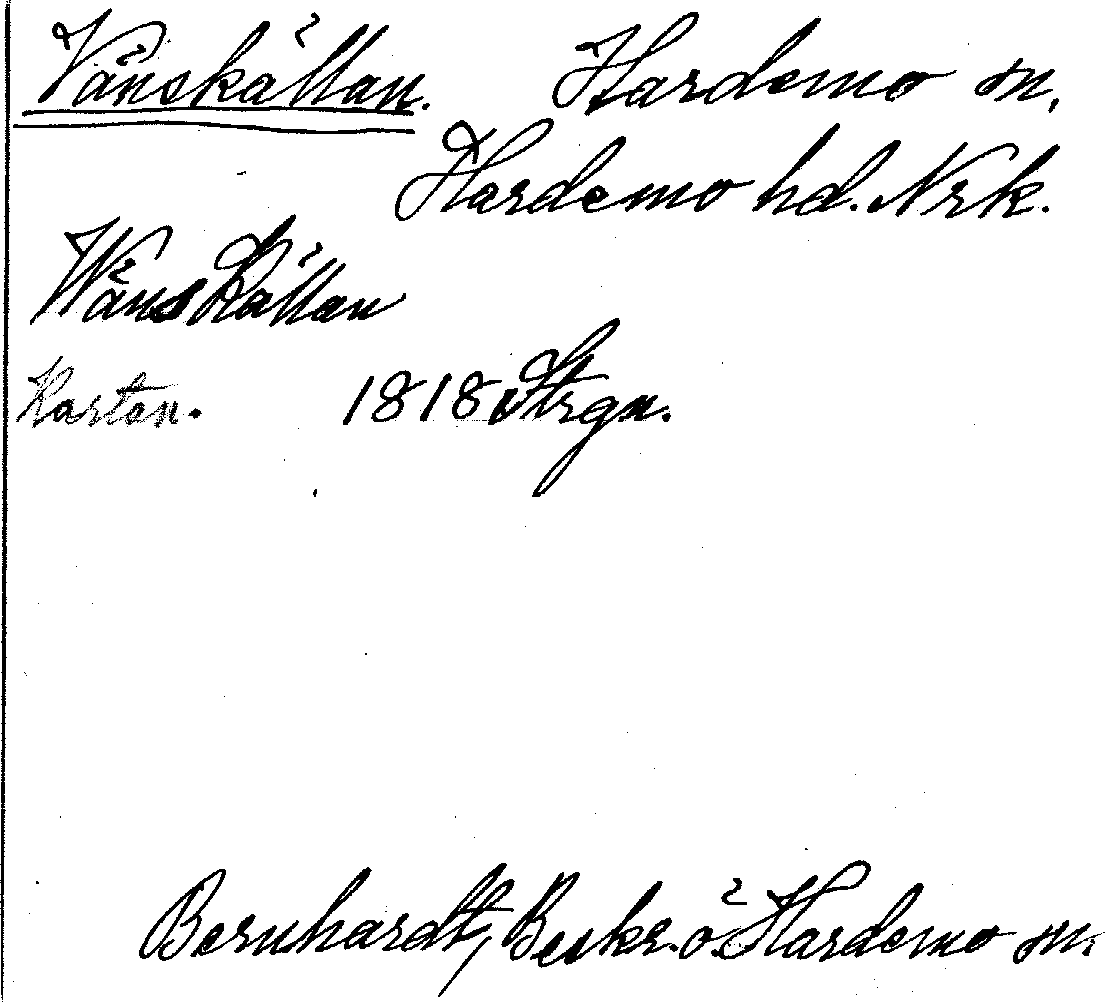 Vänskällan. Hardemo sn.
Hardemo hd. Nrk.
Wänskällan
Kartan. 1818 Strgn.
Bernhardt, Beskr. ö. Hardemo sn.